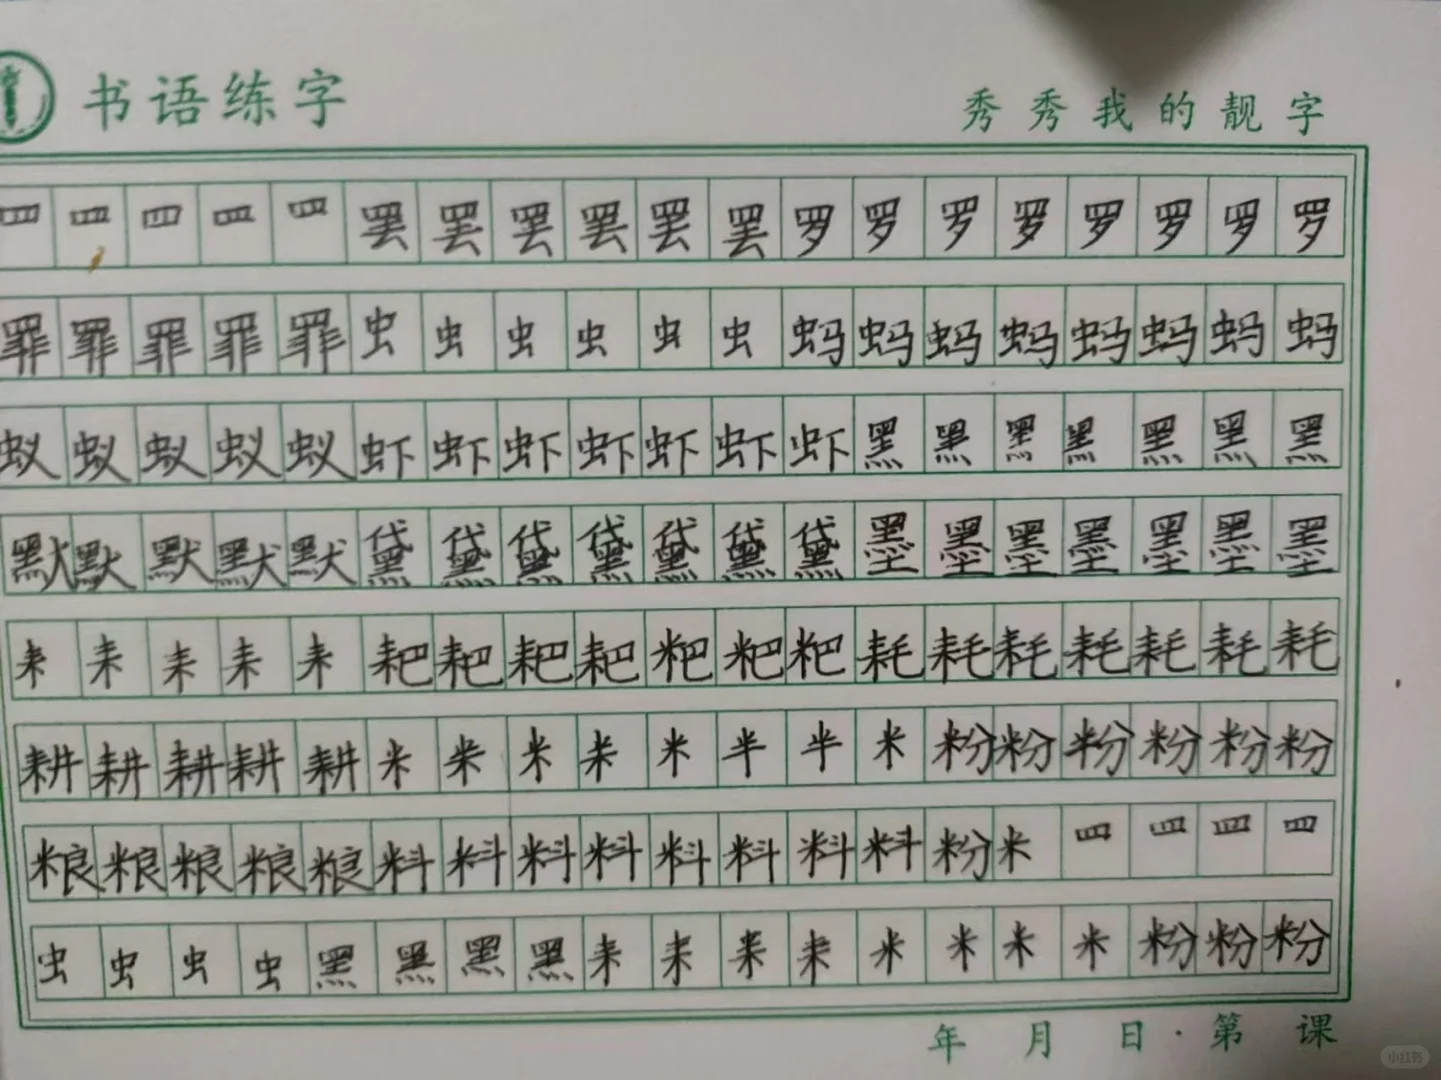 书语练字
秀秀我的靓字
罒罒罒罒罒罢罢罢罢罢罢罗罗罗罗罗罗罗罗
罪罪罪罪罪虫虫虫虫虫虫蚂蚂蚂蚂蚂蚂蚂蚂
蚁蚁蚁蚁蚁虾虾虾虾虾虾虾黑黑黑黑黑黑黑
默默默默默黛黛黛黛黛黛黛墨墨墨墨墨墨墨
耒耒耒耒耒耙耙耙耙粑粑粑耗耗耗耗耗耗耗
耕耕耕耕耕米米米米米半半米粉粉粉粉粉粉
粮粮粮粮粮料料料料料料料料粉米罒罒罒罒
虫虫虫虫黑黑黑黑耒耒耒耒米米米米粉粉粉
年 月 日·第 课
小红书